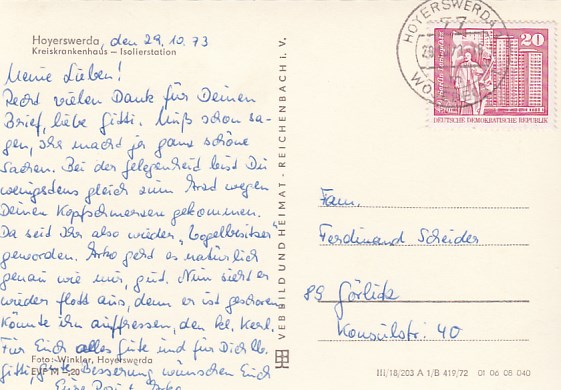 Hoyerswerda, den 29.10.73
Kreiskrankenhaus – Isolierstation
Meine Lieben!
Recht vielen Dank für Deinen
Brief, liebe Gitti. Muß schon sa-
gen, Ihr macht ja ganz schöne
Sachen. Bei der Gelegenheit bist Du
wenigstens gleich zum Arzt wegen
Deinen Kopfschmerzen gekommen.
Da seid Ihr also wieder "Vogelbesitzer"
geworden. Arko geht es natürlich
genau wie mir, gut. Nun sieht er
wieder flott aus, denn er ist geschoren.
Könnte ihn auffressen, den kl. Kerl.
Für Euch alles Gute und für Dich lb.
Gitti, gute Besserung wünschen Euch
Eure
Foto: Winkler, Hoyerswerda
EVP M –,20
VEB BILD UND HEIMAT · REICHENBACH i. V.
HOYERSWERDA
77
20
DEUTSCHE DEMOKRATISCHE REPUBLIK
Fam.
Ferdinand Scheider
89 Görlitz
Konsulstr. 40
III/18/203 A 1/B 419/72 01 06 08 040